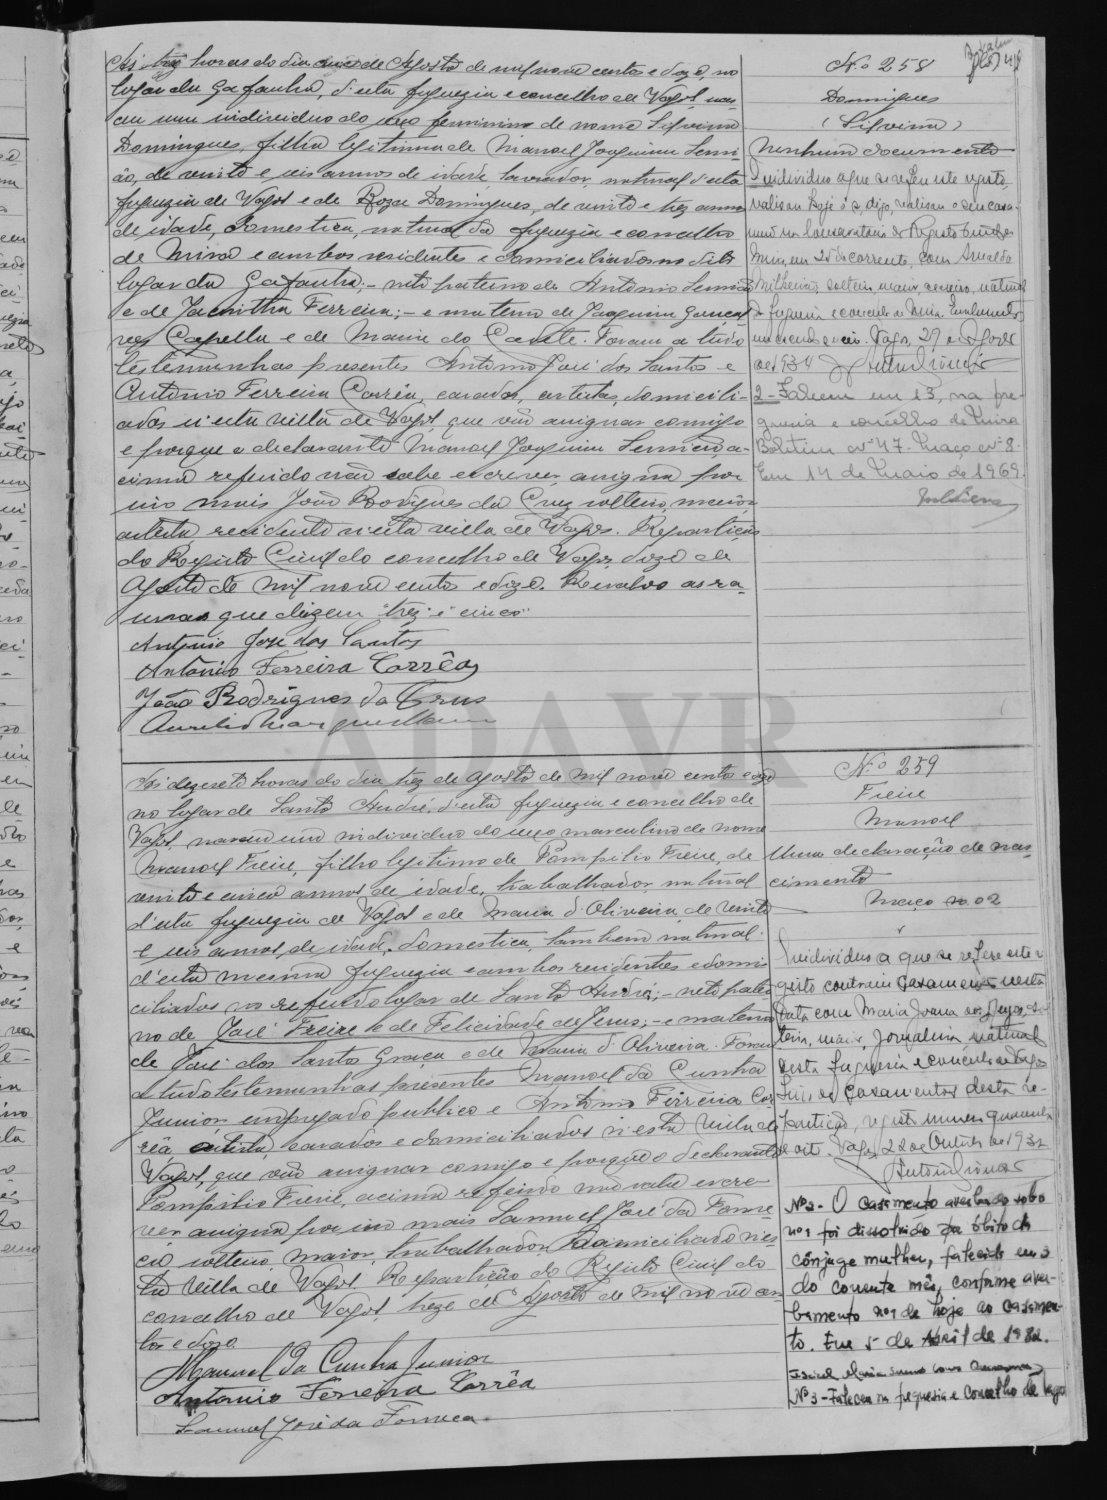 Ás trez horas do dia cinco de Agosto de mil nove centos e doze, no
logar da Gafanha, d'esta freguezia e concelho de Vagos, nas-
ceu um individuo do sexo feminino de nome Silvina
Domingues, filha legitima de Manoel Joaquim Semi-
ão, de vinte e seis annos de idade, lavrador, natural d'esta
freguezia de Vagos e de Roza Domingues, de vinte e trez annos
de idade, domestica, natural da freguezia e concelho
de Mira e ambos residentes e domiciliados no dito
logar da Gafanha; - neta paterna de Antonio Semião
e de Jacintha Ferreira; - e materna de Joaquim Gonçal
ves Capella e de Maria do Cavete. Foram a tudo
testemunhas presentes Antonio José dos Santos e
Antonio Ferreira Corrêa, casados, artistas, domicili-
ados n'esta villa de Vagos, que vão assignar comigo
e porque o declarante Manoel Joaquim Semião a-
cima referido não sabe escrever assigna por
elle mais João Rodrigues da Cruz solteiro, maior,
artista, residente n'esta villa de Vagos. Repartição
do Registo Civil do concelho de Vagos, doze de
Agosto de mil nove centos e doze. Resalvo as ra-
suras que dizem "trez" e "cinco".
Antonio José dos Santos
Antonio Ferreira Corrêa
João Rodrigues da Crus
N.º 258
Domingues
(Silvina)
Nenhum documento
O individuo a que se refere este registo
realisou hoje, digo, realisou o seu casa-
mento na Conservatoria do Registo Civil de
Mira, em 25 do corrente, com Arnaldo
Milheirão, solteiro, maior, natural
da freguesia e concelho de Mira
Vagos, 29 de
de 1934
2 - Faleceu em 13, na fre-
guesia e concelho de Mira
Boletim nº 47. Maço nº 8.
Em 14 de Maio de 1969.
Ás dezesete horas do dia trez de Agosto de mil nove centos e doze
no logar de Santo André, d'esta freguezia e concelho de
Vagos, nasceu um individuo do sexo masculino de nome
Manoel Freire, filho legitimo de Pompilio Freire, de
vinte e cinco annos de idade, trabalhador, natural
d'esta freguezia de Vagos e de Maria d'Oliveira, de vinte
e seis annos, de idade, domestica, tambem natural
d'esta mesma freguezia e ambos residentes e domi
ciliados no referido logar de Santo André; - neto pater
no de José Freire e de Felicidade de Jesus; - e materno
de José dos Santos Graça e de Maria d'Oliveira. Foram
a tudo testemunhas presentes Manoel da Cunha
Junior, empregado publico e Antonio Ferreira Cor
rêa, artista, casados e domiciliados n'esta villa de
Vagos, que vão assignar comigo e porque o declarante
Pompilio Freire, acima referido não sabe escre-
ver assigna por elle mais Samuel José da Fonse-
ca solteiro, maior, trabalhador, domiciliado n'es-
ta villa de Vagos. Repartição do Registo Civil do
concelho de Vagos, treze de Agosto de mil nove cen
tos e doze.
Manuel da Cunha Junior
Antonio Ferreira Corrêa
Samuel José da Fonseca
N.º 259
Freire
Manoel
Uma declaração de nas-
cimento
Maço nº 02
O individuo a que se refere este re-
gisto contraiu casamento nesta
data com Maria Joana de Jesus, sol-
teira, maior, jornaleira natural
desta freguesia e concelho de Vagos
Livro de casamentos desta re-
partição, registo numero quarenta
e oito. Vagos, 22 de Outubro de 1932
Nº 2 - O casamento averbado sob o
nº 1 foi dissolvido por óbito do
cônjuge mulher, falecido em 3
do corrente mês, conforme aver-
bamento nº 1 de hoje ao casamen-
to. Em 5 de Abril de 1982.
Nº 3 - Faleceu na freguesia e Concelho de Vagos
ADAVR